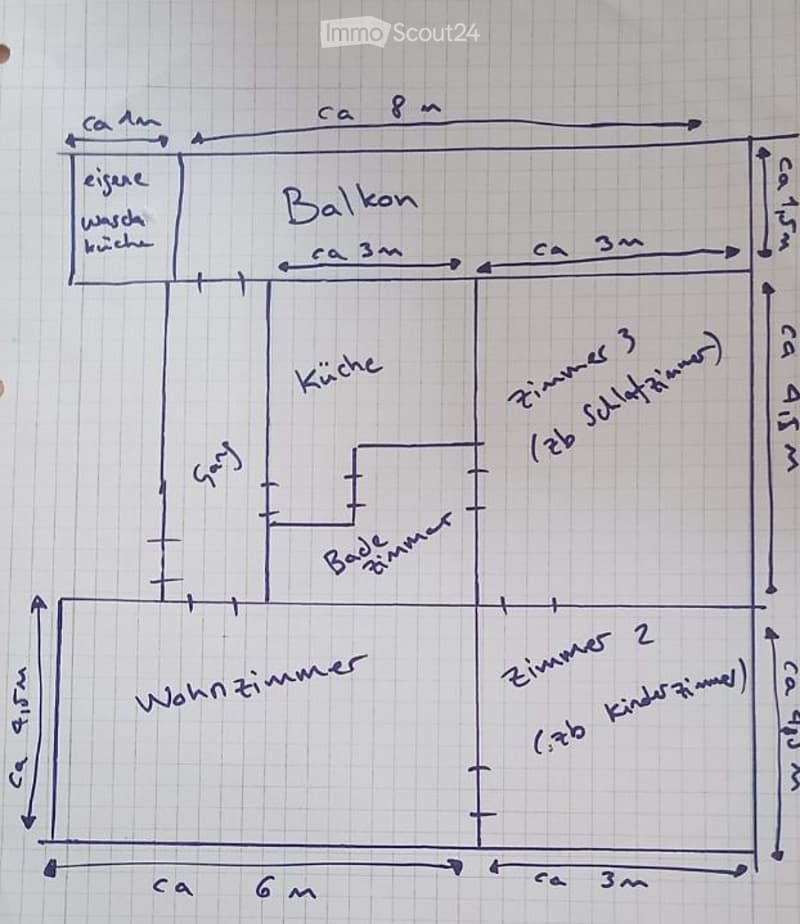 ImmoScout24
ca 1m
ca 8 m
eigene
wasch
küche
Balkon
ca 1,5m
ca 3m
ca 3m
Küche
Zimmer 3
(zb Schlafzimmer)
ca 4,5 m
Gang
Bade
zimmer
Wohnzimmer
ca 4,5m
Zimmer 2
(zb Kinderzimmer)
ca 4,5 m
ca 6 m
ca 3m